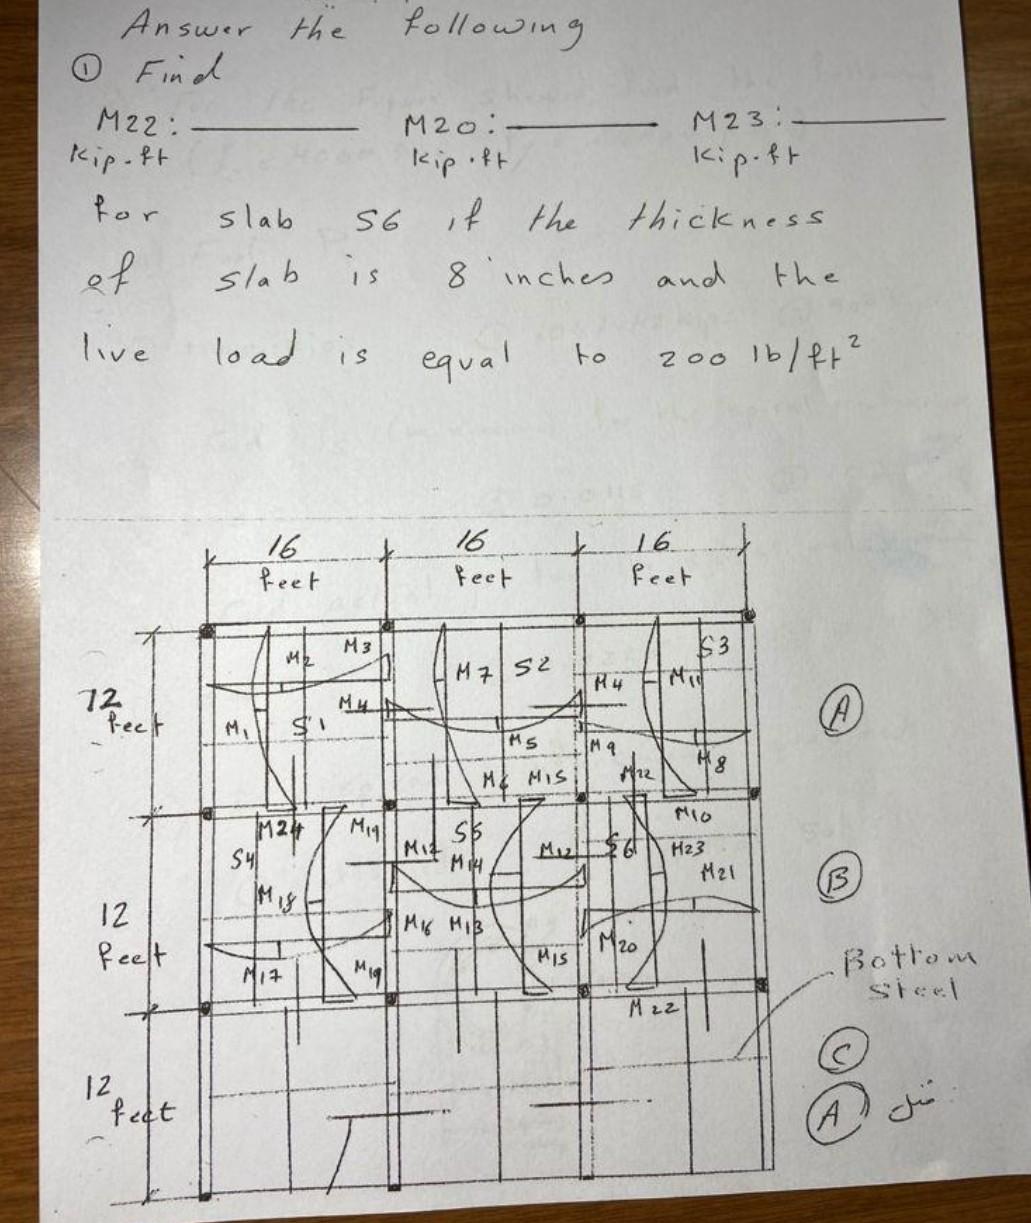 Answer the following
① Find
M22: M20: M23:
Kip.ft Kip.ft Kip.ft
for slab S6 if the thickness
of slab is 8 inches and the
live load is equal to 200 lb/ft²
16 16 16
feet feet feet
M2 M3 M7 S2 M4 M11 S3
M1 S1 M4 M5 M9 M8
M6 M15 M22 M10
12
feet
A
M24 M19 S5 S6 M23
S4 M12 M14 M12 M21
M18 M16 M13 M20
M17 M19 M15 M22
12
feet
B
Bottom
Steel
12
feet
C
A مثل